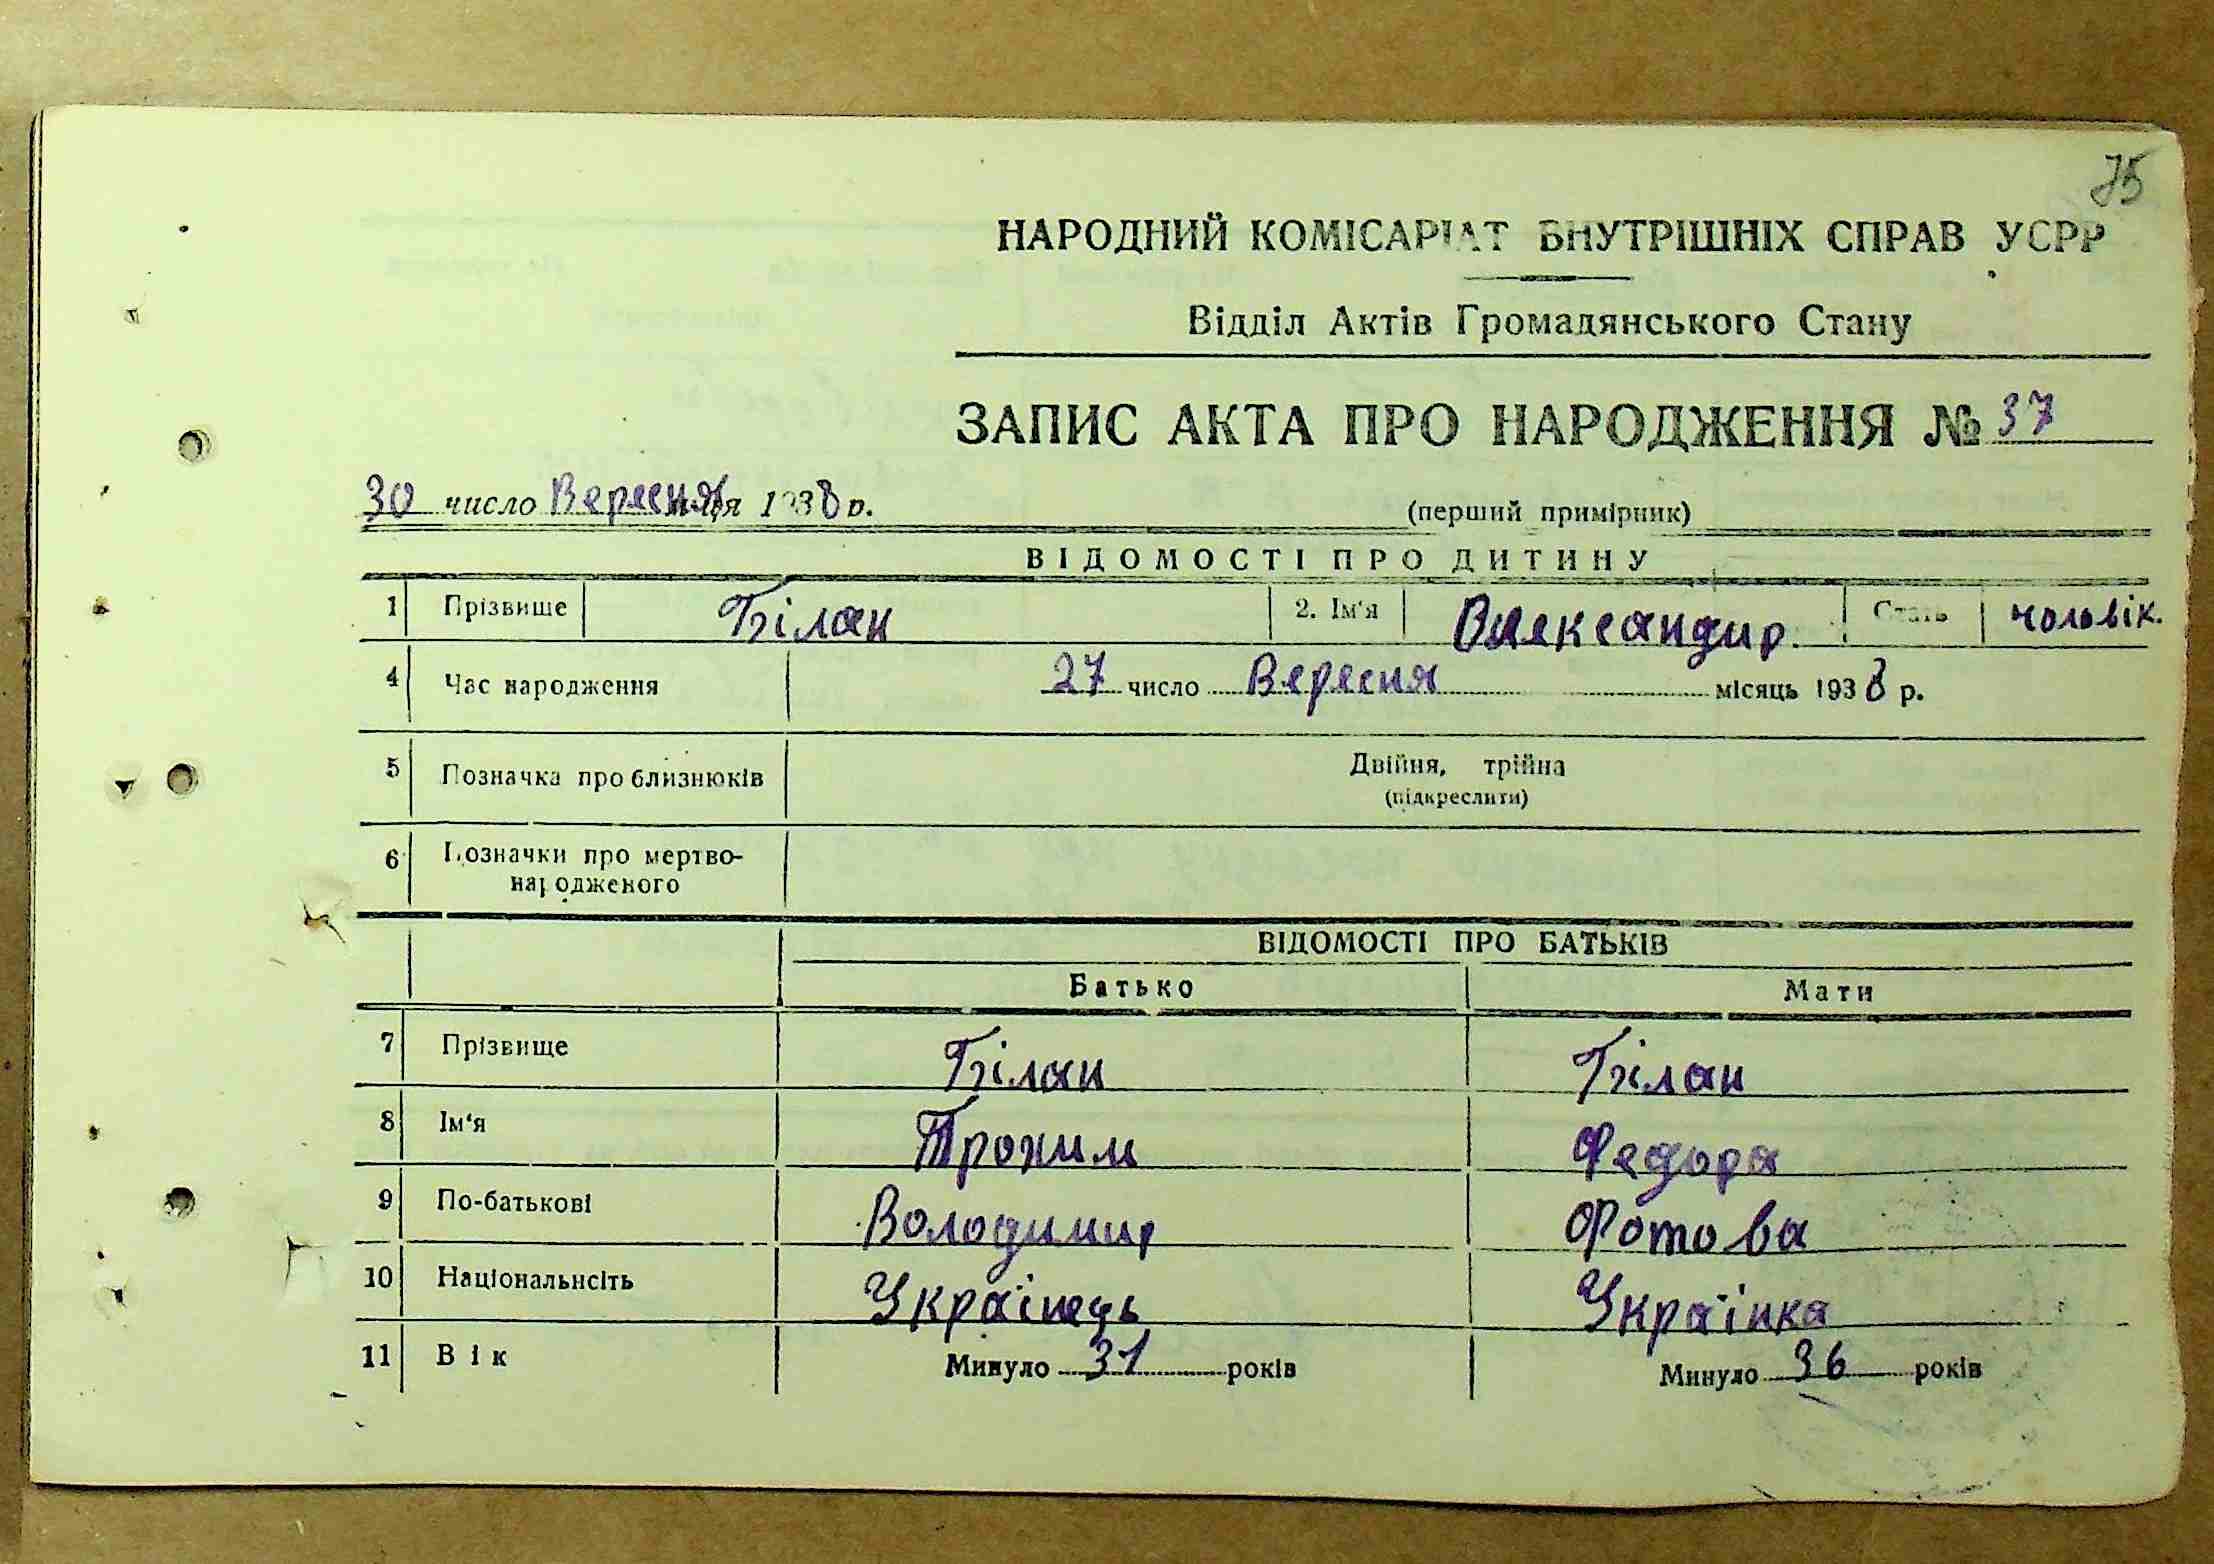 75
НАРОДНИЙ КОМІСАРІАТ ВНУТРІШНІХ СПРАВ УСРР
Відділ Актів Громадянського Стану
ЗАПИС АКТА ПРО НАРОДЖЕННЯ № 37
30 число Вересня м-ця 1938 р.
(перший примірник)
ВІДОМОСТІ ПРО ДИТИНУ
1 Прізвище Білан 2. Ім'я Олександир. Стать чоловік.
4 Час народження 27 число Вересня місяць 1938 р.
5 Позначка про близнюків Двійня, трійна
(підкреслити)
6 Позначки про мертво-
народженого
ВІДОМОСТІ ПРО БАТЬКІВ
Батько Мати
7 Прізвище Білан Білан
8 Ім'я Трохим Федора
9 По-батькові Володимир Фотова
10 Національнсіть Українець Українка
11 Вік Минуло 31 років Минуло 36 років